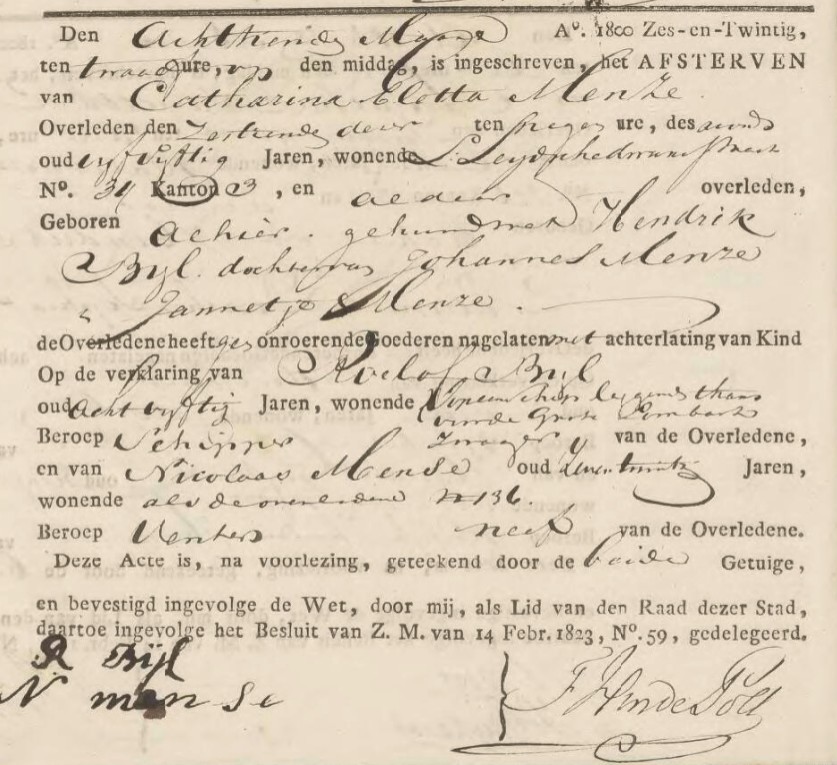 Den Achttiende Maart Aº. 1800 Zes-en-Twintig,
ten twaalf ure, op den middag, is ingeschreven, het AFSTERVEN
van Catharina Eletta Menze
Overleden den Zestiende dezer ten ure, des avonds
oud vyfvyftig Jaren, wonende L: Leydschedwarsstraat
Nº. 31 Kanton 3, en aldaar overleden,
Geboren Alhier. gehuwd met Hendrik
Byl. dochter van Johannes Menze
& Jannetje Menze.
de Overledene heeft geen onroerende Goederen nagelaten met achterlating van Kind
Op de verklaring van Roelof Byl
oud acht vyftig Jaren, wonende op een schip leggende thans
voor de Groote
Beroep Schipper Zwager van de Overledene,
en van Nicolaas Mense oud Zeventwintig Jaren,
wonende als de overledene Nº 136.
Beroep neef van de Overledene.
Deze Acte is, na voorlezing, geteekend door de beide Getuige,
en bevestigd ingevolge de Wet, door mij, als Lid van den Raad dezer Stad,
daartoe ingevolge het Besluit van Z. M. van 14 Febr. 1823, Nº. 59, gedelegeerd.
R Bijl
N mense